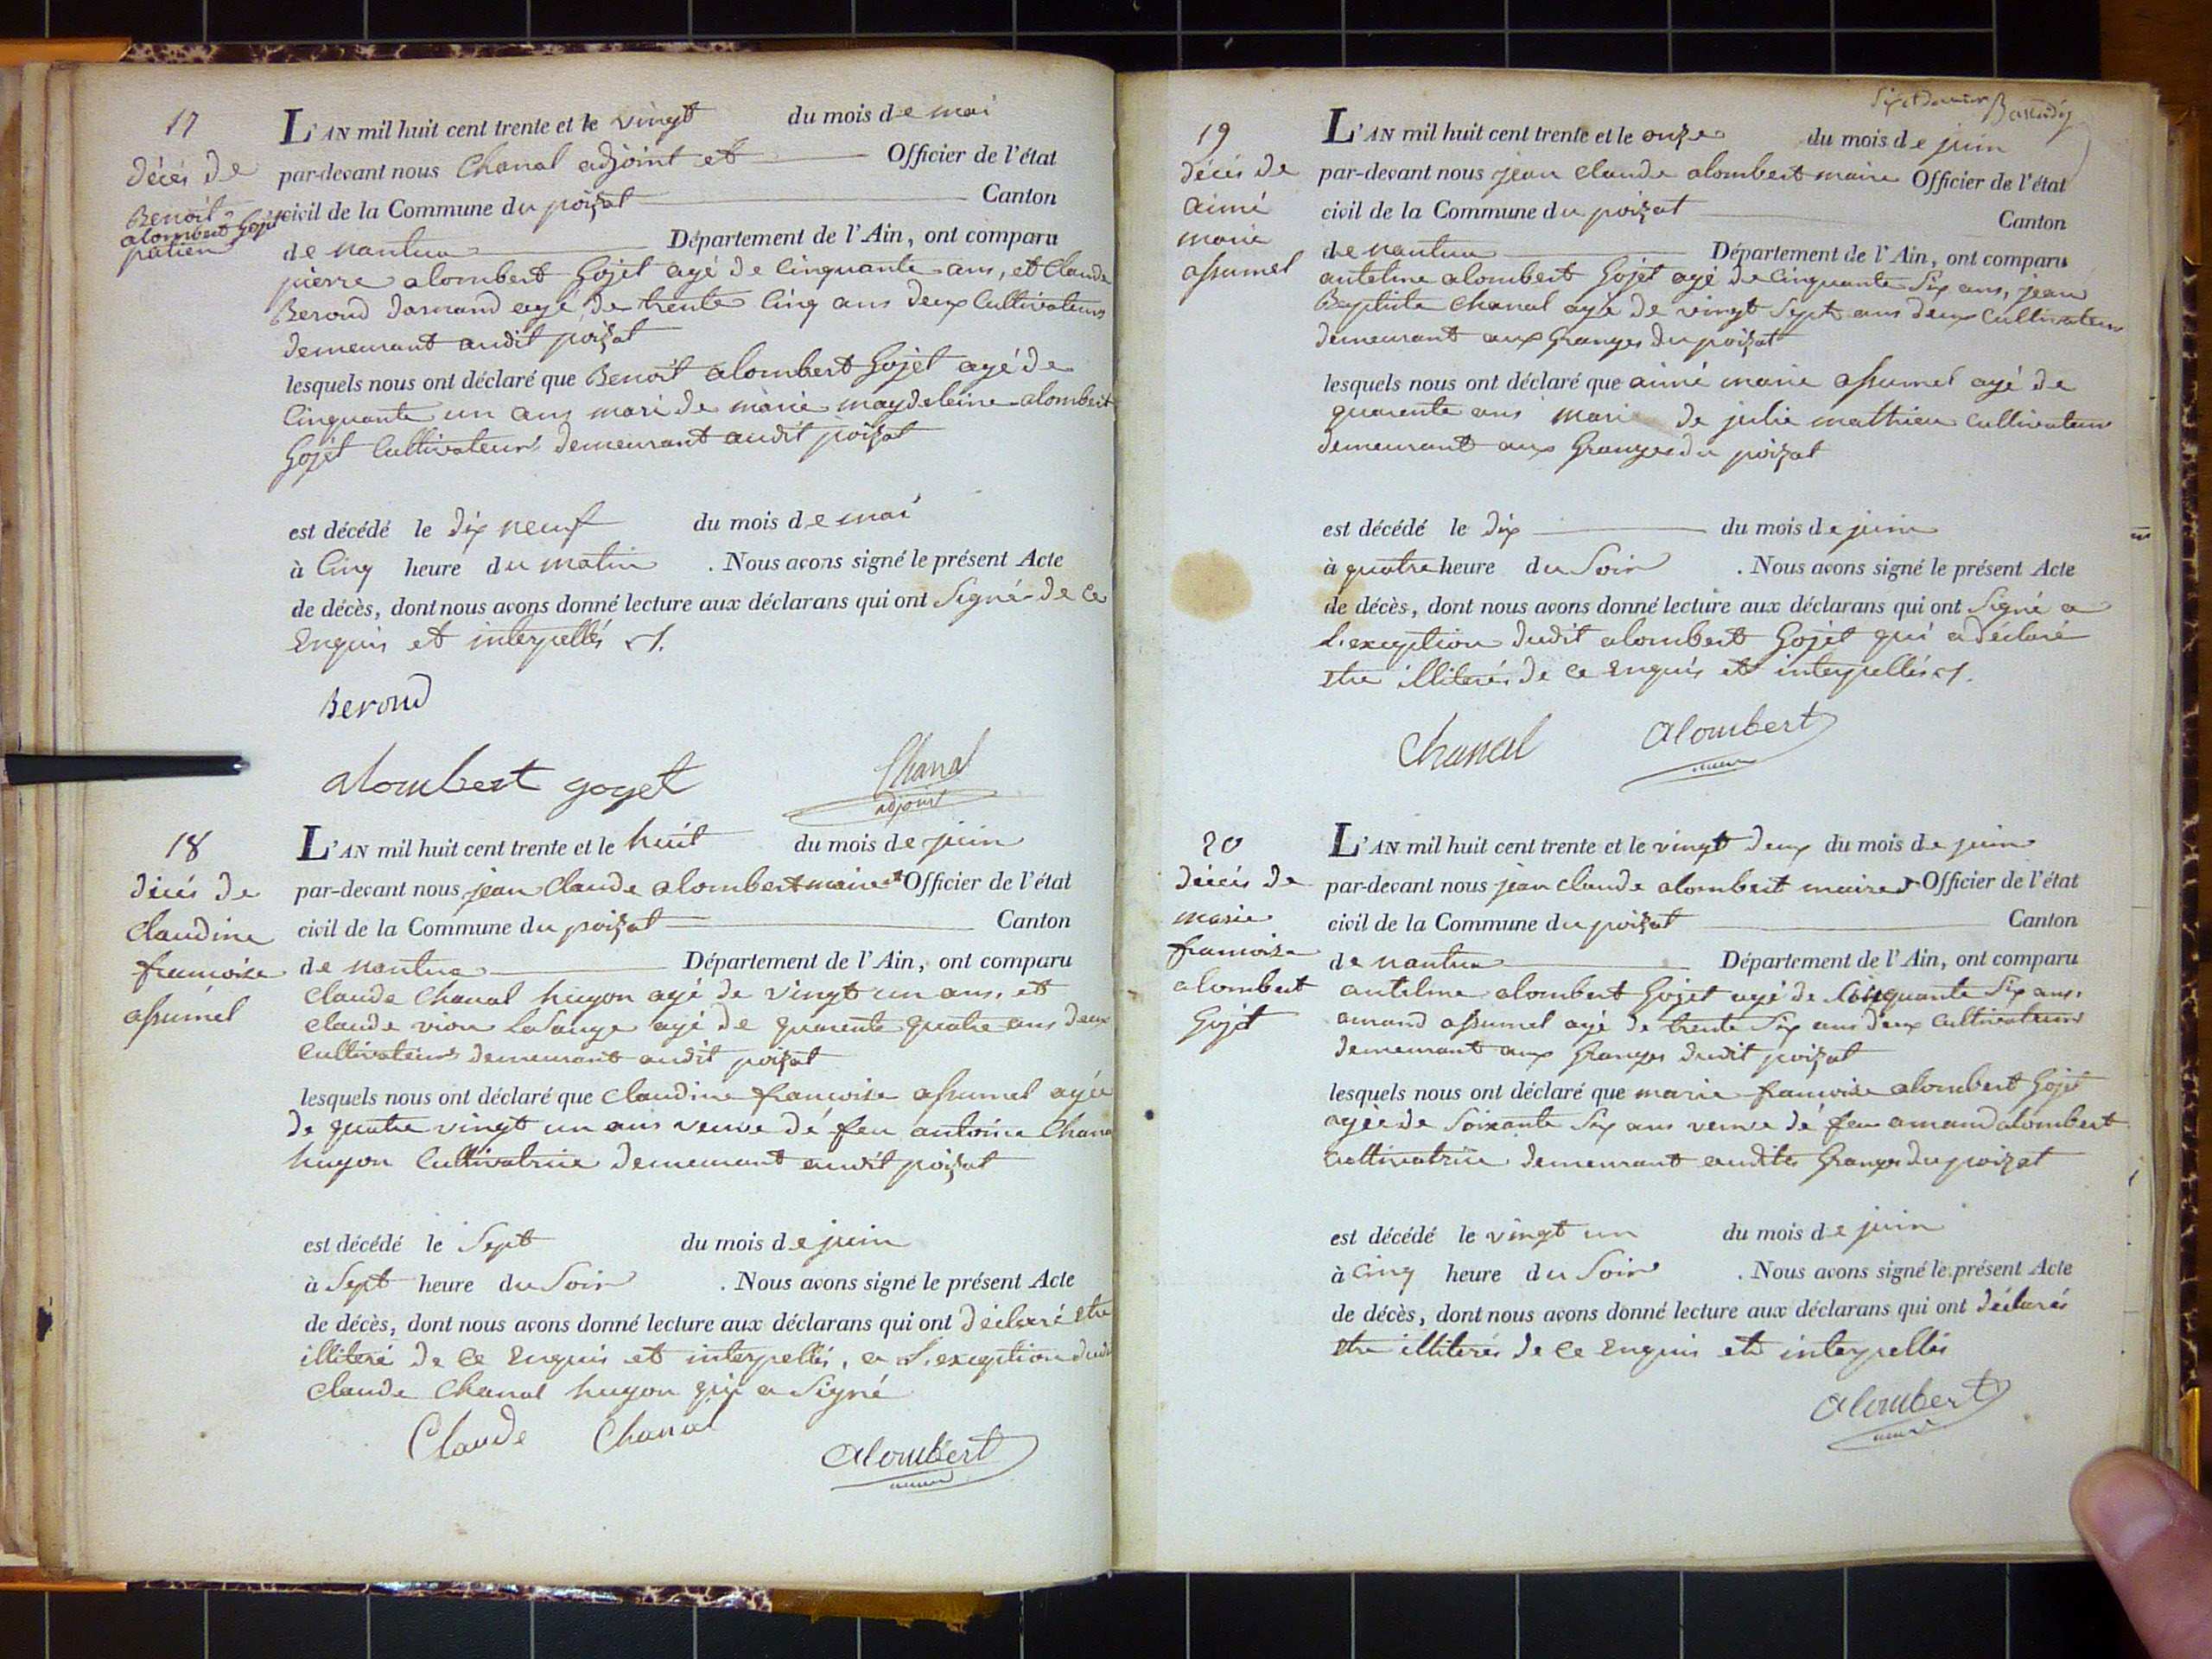 17
décés de
Benoit
alombert Gojet
patien
L'AN mil huit cent trente et le vingt du mois de mai
par-devant nous Chanal adjoint et Officier de l'état
civil de la Commune du poizat Canton
de nantua Département de l'Ain, ont comparu
pierre alombert Gojet agé de Cinquante ans, et Claude
Beroud darmand agé de trente Cinq ans deux Cultivateurs
demeurant audit poizat
lesquels nous ont déclaré que Benoit alombert Gojet agé de
Cinquante un ans mari de marie magdeleine alombert
Gojet Cultivateur demeurant audit poizat
est décédé le dix neuf du mois de mai
à Cinq heure du matin . Nous avons signé le présent Acte
de décès, dont nous avons donné lecture aux déclarans qui ont Signé de Ce
Enquis et interpellés
Beroud
alombert goget
Chanal
adjoint
18
décés de
Claudine
francoise
assumel
L'AN mil huit cent trente et le huit du mois de juin
par-devant nous jean Claude alombert maire et Officier de l'état
civil de la Commune du poizat Canton
de nantua Département de l'Ain, ont comparu
Claude Chanal hugon agé de vingt un ans, et
Claude vion agé de quarente quatre ans deux
Cultivateurs demeurant audit poizat
lesquels nous ont déclaré que Claudine francoise assumel agée
de quatre vingt un ans veuve de feu antoine Chanal
hugon Cultivatrice demeurant audit poizat
est décédé le Sept du mois de juin
à Sept heure du Soir . Nous avons signé le présent Acte
de décès, dont nous avons donné lecture aux déclarans qui ont déclaré etre
illiteré de Ce Enquis et interpellés, a L'exception dudit
Claude Chanal hugon qui a Signé
Claude Chanal
Alombert
maire
19
décés de
aimé
marie
assumel
L'AN mil huit cent trente et le onze du mois de juin
par-devant nous jean Claude alombert maire Officier de l'état
civil de la Commune du poizat Canton
de nantua Département de l'Ain, ont comparu
antelme alombert Gojet agé de Cinquante Six ans, jean
Baptiste Chanal agé de vingt Sept ans deux Cultivateurs
demeurant aux Granges du poizat
lesquels nous ont déclaré que aimé marie assumel agé de
quarente ans mari de julie mathieu Cultivateur
demeurant aux Granges du poizat
est décédé le dix du mois de juin
à quatre heure du Soir . Nous avons signé le présent Acte
de décès, dont nous avons donné lecture aux déclarans qui ont Signé a
L'exception dudit alombert Gojet qui a déclaré
etre illiterés de Ce Enquis et interpellés
Chanal
Alombert
maire
20
décés de
marie
francoise
alombert
Gojet
L'AN mil huit cent trente et le vingt deux du mois de juin
par-devant nous jean Claude alombert maire et Officier de l'état
civil de la Commune du poizat Canton
de nantua Département de l'Ain, ont comparu
antelme alombert Gojet agé de Cinquante Six ans,
amand assumel agé de trente Six ans deux Cultivateurs
demeurant aux Granges dudit poizat
lesquels nous ont déclaré que marie francoise alombert Gojet
agée de Soixante Six ans veuve de feu amand alombert
Cultivatrice demeurant audites Granges du poizat
est décédé le vingt un du mois de juin
à Cinq heure du Soir . Nous avons signé le présent Acte
de décès, dont nous avons donné lecture aux déclarans qui ont déclarés
etre illiterés de Ce Enquis et interpellés
Alombert
maire